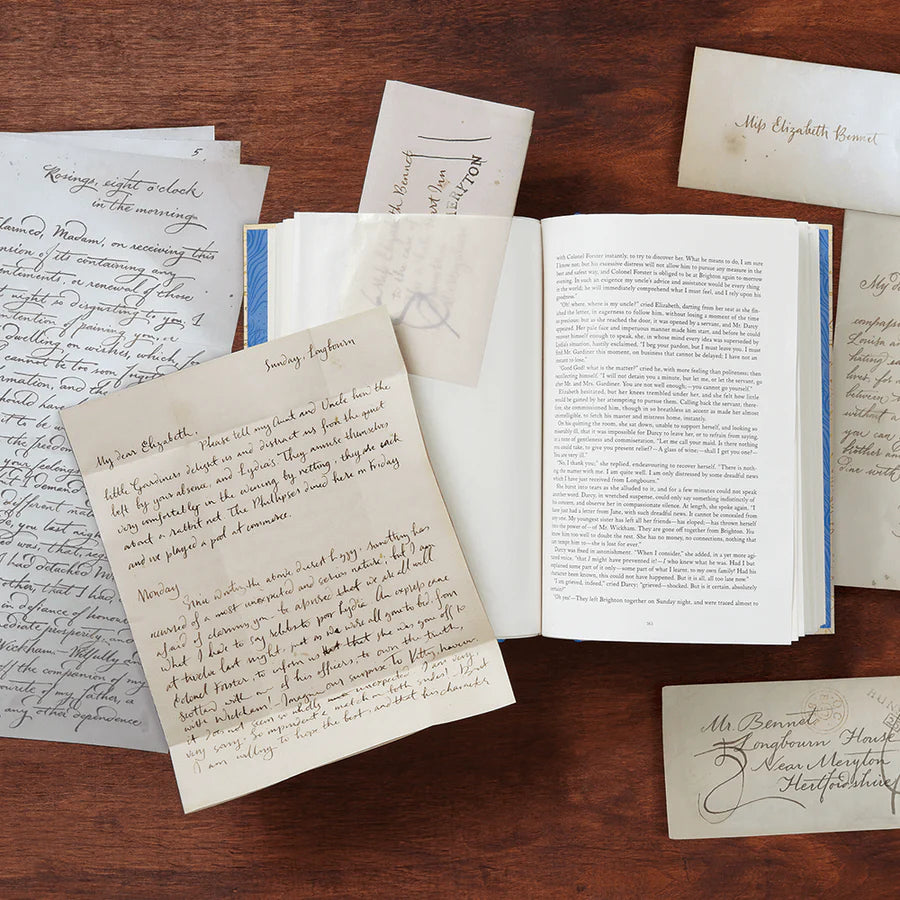 5
Rosings, eight o'clock
in the morning
larmed, Madam, on receiving this
nsion of its containing any
entiments, or renewal of those
t night so disgusting to you, I
ntention of paining you, or
dwelling on wishes, which, for
cannot be too soon forgotten
rmation, and the
should have
it to be
the freedom
your feelings
t demand
different
e, you last night
was, that, reg
had detached Mr
other, that I had
in defiance of honour
mediate prosperity, an
Wickham.—Wilfully an
the companion of my
vourite of my father, a
any other dependence
Sunday, Longbourn
My dear Elizabeth,
Please tell my Aunt and Uncle how the
little Gardiners delight us and distract us from the quiet
left by your absence, and Lydia's. They amuse themselves
very comfortably in the evening by netting; they do each
about a rabbit net. The Phillipses dined here on Friday
and we played a pool at commerce.
Monday
Since writing the above, dearest Lizzy, something has
occurred of a most unexpected and serious nature; but I am
afraid of alarming you. be assured that we are all well.
What I have to say relates to poor Lydia. An express came
at twelve last night, just as we were all gone to bed, from
Colonel Forster, to inform us that she was gone off to
Scotland with one of his officers; to own the truth,
with Wickham!—Imagine our surprise. To Kitty, however,
it does not seem so wholly unexpected. I am very,
very sorry. So imprudent a match on both sides!—But
I am willing to hope the best, and that his character
Elizabeth Bennet
MERYTON
with Colonel Forster instantly, to try to discover her. What he means to do, I am sure
I know not; but his excessive distress will not allow him to pursue any measure in the
best and safest way, and Colonel Forster is obliged to be at Brighton again to-morrow
evening. In such an exigence my uncle's advice and assistance would be every thing
in the world; he will immediately comprehend what I must feel, and I rely upon his
goodness."
"Oh! where, where is my uncle?" cried Elizabeth, darting from her seat as she fin-
ished the letter, in eagerness to follow him, without losing a moment of the time
so precious; but as she reached the door, it was opened by a servant, and Mr. Darcy
appeared. Her pale face and impetuous manner made him start, and before he could
recover himself enough to speak, she, in whose mind every idea was superseded by
Lydia's situation, hastily exclaimed, "I beg your pardon, but I must leave you. I must
find Mr. Gardiner this moment, on business that cannot be delayed; I have not an
instant to lose."
"Good God! what is the matter?" cried he, with more feeling than politeness; then
recollecting himself, "I will not detain you a minute, but let me, or let the servant, go
after Mr. and Mrs. Gardiner. You are not well enough;—you cannot go yourself."
Elizabeth hesitated, but her knees trembled under her, and she felt how little
would be gained by her attempting to pursue them. Calling back the servant, there-
fore, she commissioned him, though in so breathless an accent as made her almost
unintelligible, to fetch his master and mistress home, instantly.
On his quitting the room, she sat down, unable to support herself, and looking so
miserably ill, that it was impossible for Darcy to leave her, or to refrain from saying,
in a tone of gentleness and commiseration, "Let me call your maid. Is there nothing
you could take, to give you present relief?—A glass of wine;—shall I get you one?—
You are very ill."
"No, I thank you;" she replied, endeavouring to recover herself. "There is noth-
ing the matter with me. I am quite well. I am only distressed by some dreadful news
which I have just received from Longbourn."
She burst into tears as she alluded to it, and for a few minutes could not speak
another word. Darcy, in wretched suspense, could only say something indistinctly of
his concern, and observe her in compassionate silence. At length, she spoke again. "I
have just had a letter from Jane, with such dreadful news. It cannot be concealed from
any one. My youngest sister has left all her friends—has eloped;—has thrown herself
into the power of—of Mr. Wickham. They are gone off together from Brighton. You
know him too well to doubt the rest. She has no money, no connections, nothing that
can tempt him to—she is lost for ever."
Darcy was fixed in astonishment. "When I consider," she added, in a yet more agi-
tated voice, "that I might have prevented it!—I who knew what he was. Had I but
explained some part of it only—some part of what I learnt, to my own family! Had his
character been known, this could not have happened. But it is all, all too late now."
"I am grieved, indeed," cried Darcy; "grieved—shocked. But is it certain, absolutely
certain?"
"Oh yes!—They left Brighton together on Sunday night, and were traced almost to
Miss Elizabeth Bennet
My
Louisa
without a
you can
brother
Mr. Bennet
Longbourn House
Near Meryton
Hertfordshire